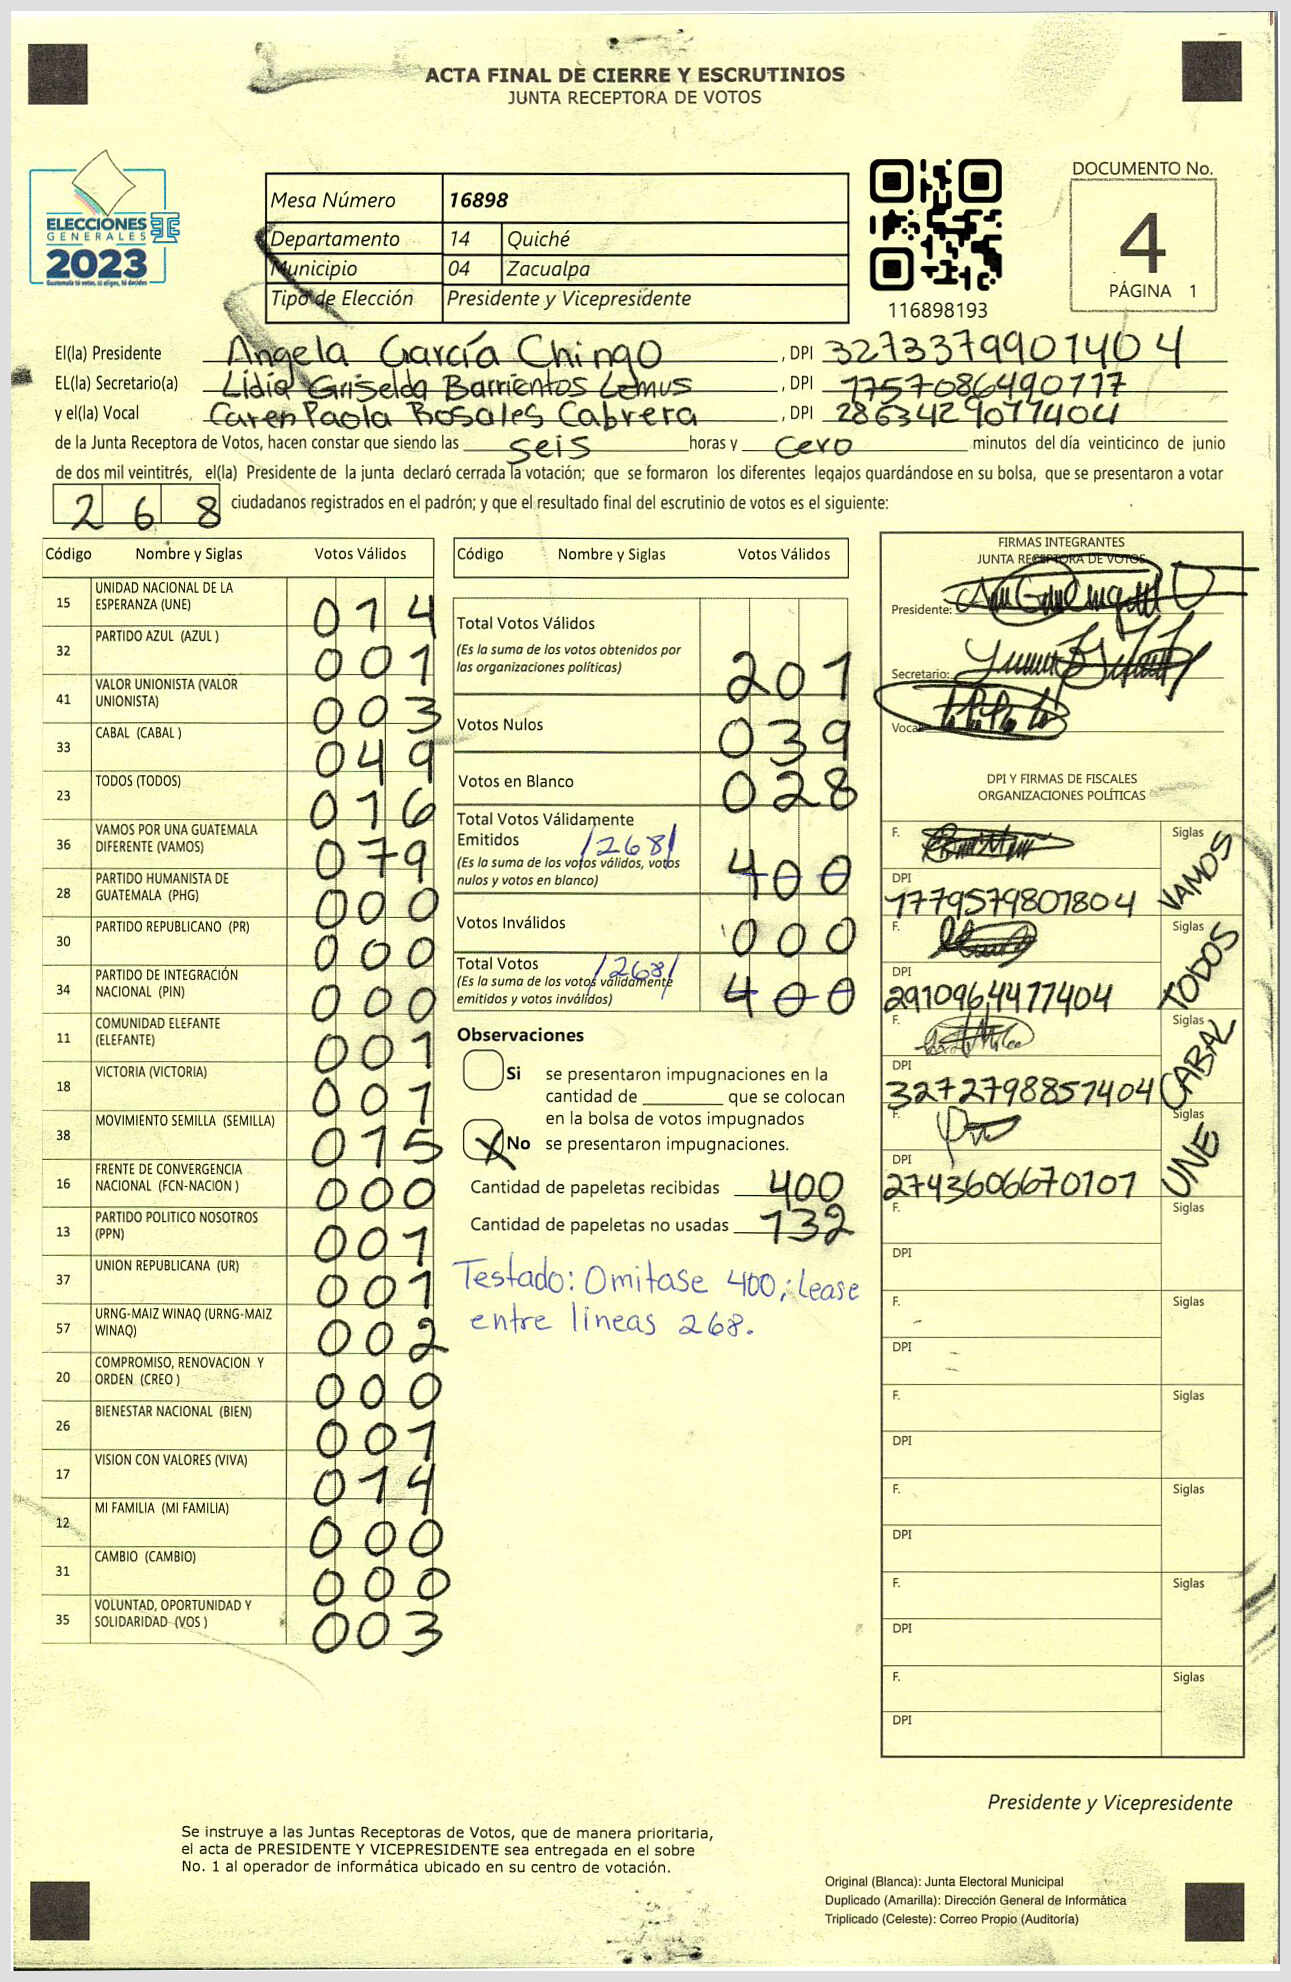 ACTA FINAL DE CIERRE Y ESCRUTINIOS
JUNTA RECEPTORA DE VOTOS
ELECCIONES
GENERALES
2023
Guatemala tú votas, tú eliges, tú decides
Mesa Número 16898
Departamento 14 Quiché
Municipio 04 Zacualpa
Tipo de Elección Presidente y Vicepresidente
116898193
DOCUMENTO No.
4
PÁGINA 1
El(la) Presidente Angela García Chingo , DPI 3273379901404
EL(la) Secretario(a) Lidia Griselda Barrientos Lemus , DPI 1757086490117
y el(la) Vocal Caren Paola Rosales Cabrera , DPI 2863429071404
de la Junta Receptora de Votos, hacen constar que siendo las seis horas y cero minutos del día veinticinco de junio
de dos mil veintitrés, el(la) Presidente de la junta declaró cerrada la votación; que se formaron los diferentes legajos quardándose en su bolsa, que se presentaron a votar
268 ciudadanos registrados en el padrón; y que el resultado final del escrutinio de votos es el siguiente:
Código Nombre y Siglas Votos Válidos
15 UNIDAD NACIONAL DE LA
ESPERANZA (UNE) 014
32 PARTIDO AZUL (AZUL ) 001
41 VALOR UNIONISTA (VALOR
UNIONISTA) 003
33 CABAL (CABAL ) 049
23 TODOS (TODOS) 016
36 VAMOS POR UNA GUATEMALA
DIFERENTE (VAMOS) 079
28 PARTIDO HUMANISTA DE
GUATEMALA (PHG) 000
30 PARTIDO REPUBLICANO (PR) 000
34 PARTIDO DE INTEGRACIÓN
NACIONAL (PIN) 000
11 COMUNIDAD ELEFANTE
(ELEFANTE) 001
18 VICTORIA (VICTORIA) 001
38 MOVIMIENTO SEMILLA (SEMILLA) 015
16 FRENTE DE CONVERGENCIA
NACIONAL (FCN-NACION ) 000
13 PARTIDO POLITICO NOSOTROS
(PPN) 001
37 UNION REPUBLICANA (UR) 001
57 URNG-MAIZ WINAQ (URNG-MAIZ
WINAQ) 002
20 COMPROMISO, RENOVACION Y
ORDEN (CREO ) 000
26 BIENESTAR NACIONAL (BIEN) 001
17 VISION CON VALORES (VIVA) 014
12 MI FAMILIA (MI FAMILIA) 000
31 CAMBIO (CAMBIO) 000
35 VOLUNTAD, OPORTUNIDAD Y
SOLIDARIDAD (VOS ) 003
Código Nombre y Siglas Votos Válidos
Total Votos Válidos
(Es la suma de los votos obtenidos por
las organizaciones políticas) 201
Votos Nulos 039
Votos en Blanco 028
Total Votos Válidamente
Emitidos /268/
(Es la suma de los votos válidos, votos
nulos y votos en blanco) 400
Votos Inválidos 000
Total Votos /268/
(Es la suma de los votos válidamente
emitidos y votos inválidos) 400
Observaciones
Si se presentaron impugnaciones en la
cantidad de ________ que se colocan
en la bolsa de votos impugnados
X No se presentaron impugnaciones.
Cantidad de papeletas recibidas 400
Cantidad de papeletas no usadas 132
Testado: Omitase 400,; Lease
entre lineas 268.
FIRMAS INTEGRANTES
JUNTA RECEPTORA DE VOTOS
Presidente:
Secretario:
Vocal
DPI Y FIRMAS DE FISCALES
ORGANIZACIONES POLÍTICAS
F. Siglas VAMOS
DPI
1779579801804
F. Siglas TODOS
DPI
2910964477404
F. Siglas CABAL
DPI
3272798857404
F. Siglas UNE
DPI
2743606670101
F. Siglas
DPI
F. Siglas
DPI
F. Siglas
DPI
F. Siglas
DPI
F. Siglas
DPI
F. Siglas
DPI
Presidente y Vicepresidente
Se instruye a las Juntas Receptoras de Votos, que de manera prioritaria,
el acta de PRESIDENTE Y VICEPRESIDENTE sea entregada en el sobre
No. 1 al operador de informática ubicado en su centro de votación.
Original (Blanca): Junta Electoral Municipal
Duplicado (Amarilla): Dirección General de Informática
Triplicado (Celeste): Correo Propio (Auditoría)